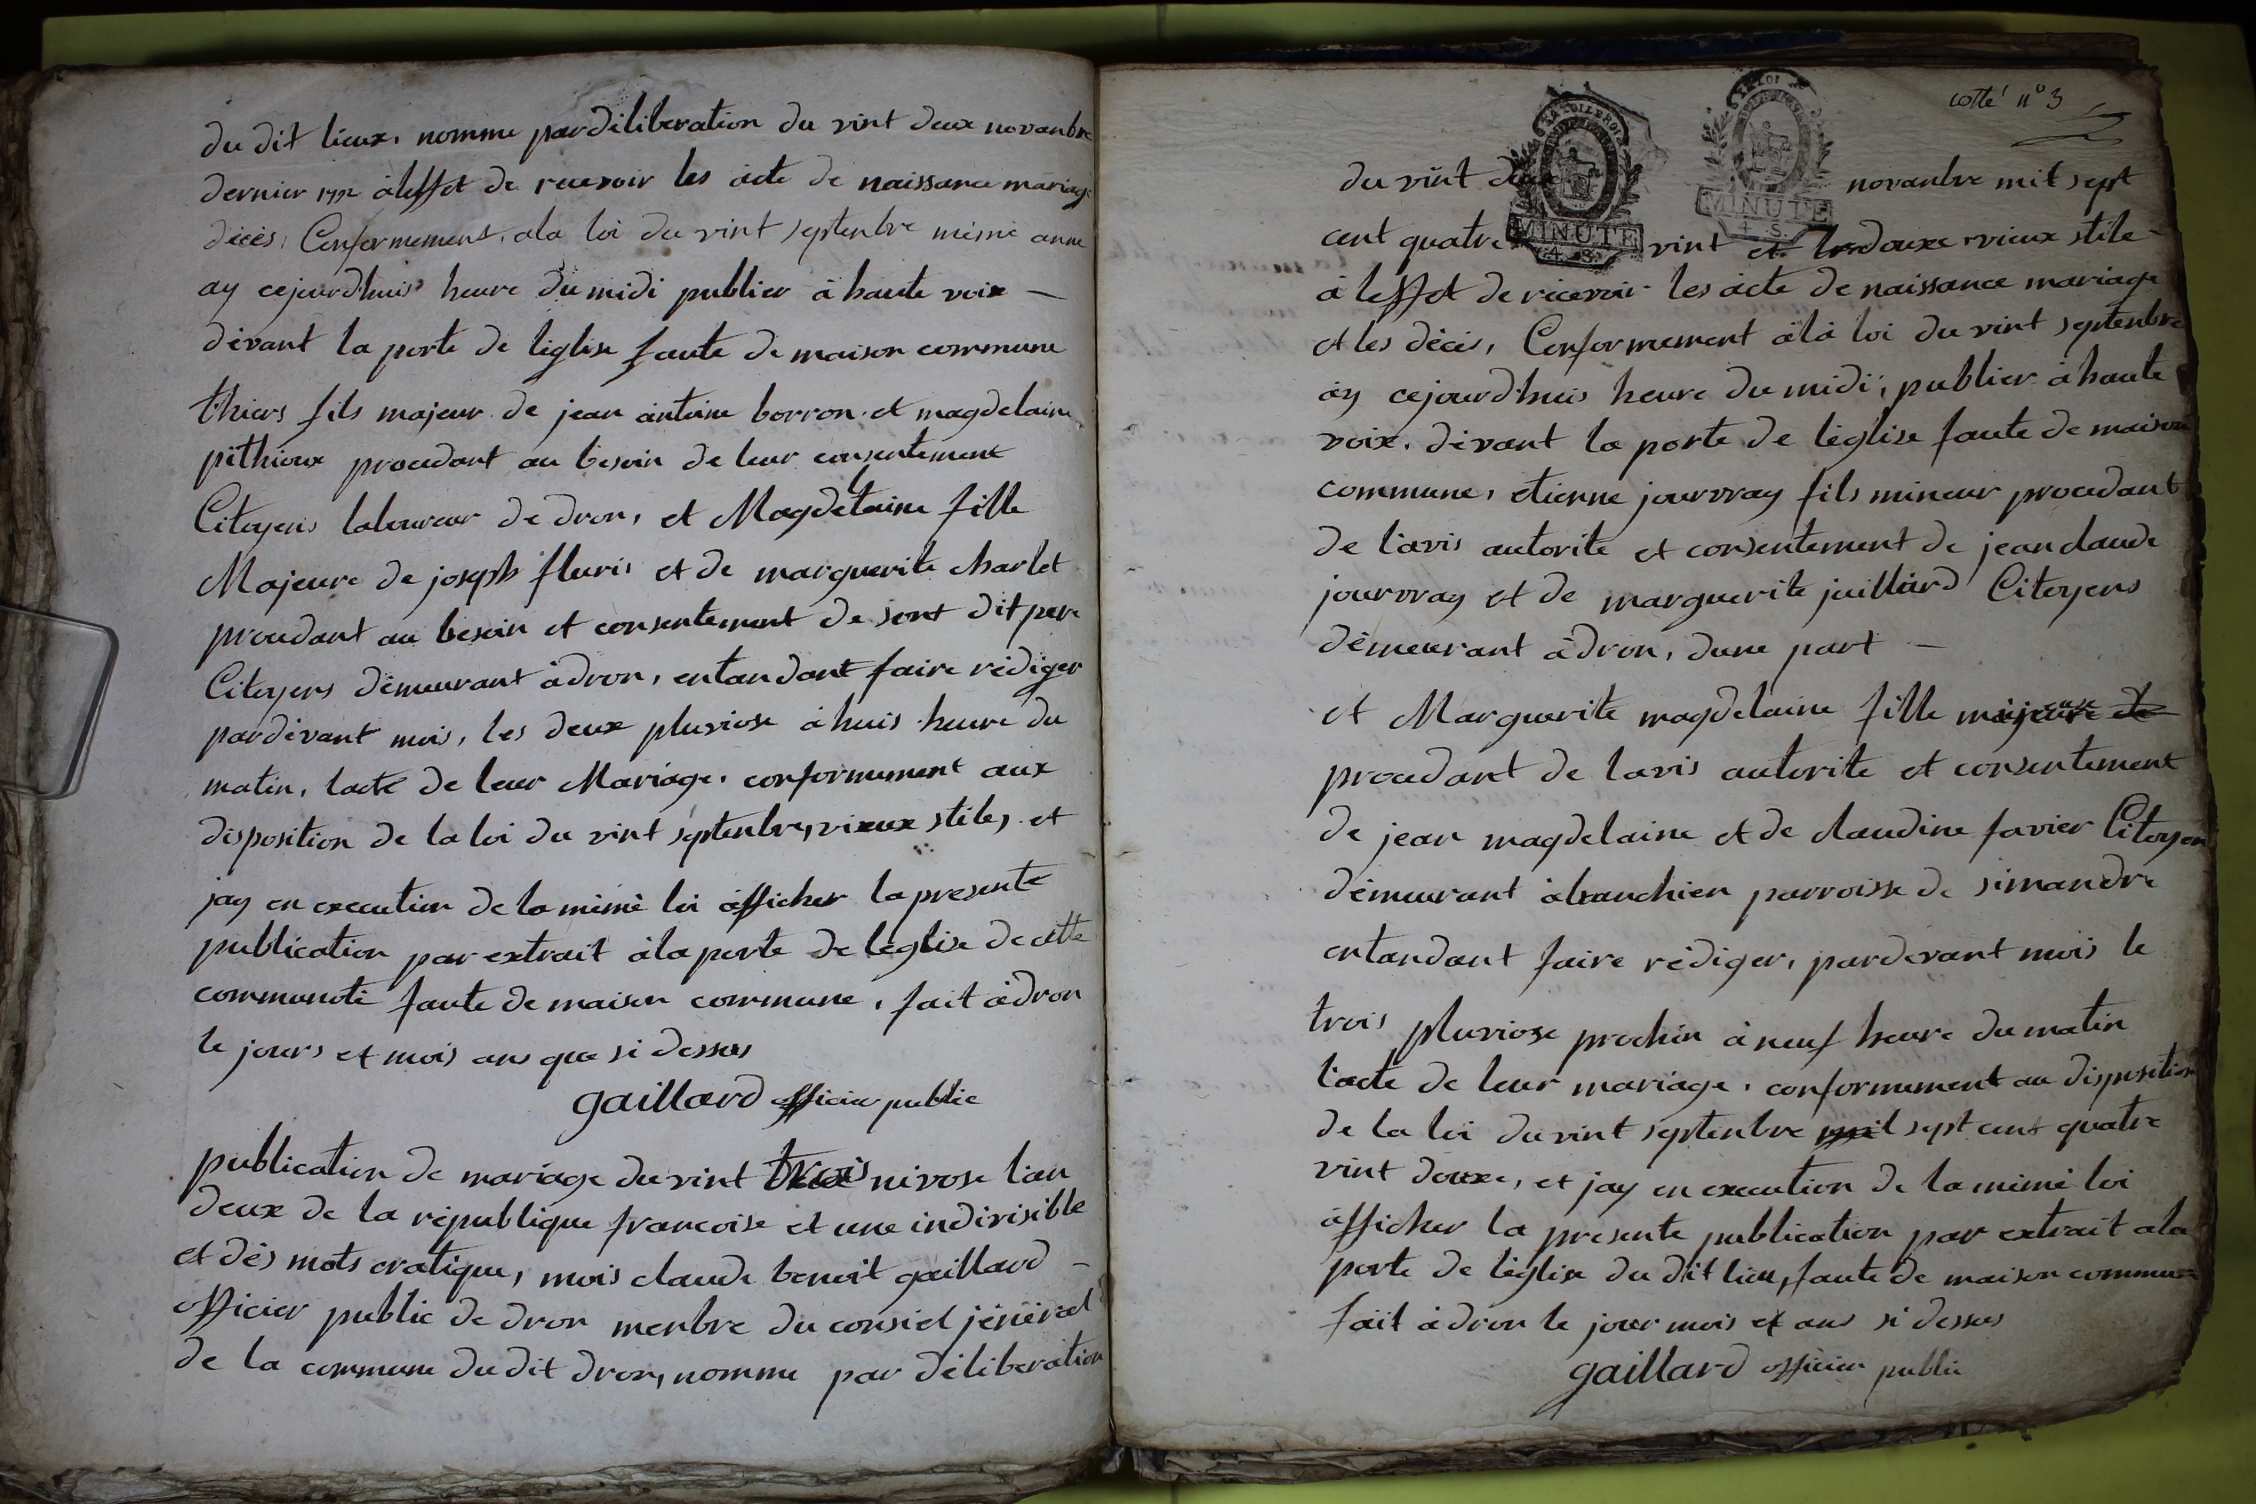 du dit lieux, nomme par dèliberation du vint deux novanbre
dernier 1792 àleffet de recevoir les àcte de naissance mariage
dècès, Conformement, ala loi du vint septenbre mème anne
ay cejourdhuis heure du midi publier à haute voix —
dèvant la porte de lèglise faute de maison commune
thiers fils majeur de jean àntoine borron et magdelaine
pithioux procedant au besoin de leur consentement
Citoyens laboureur de dron, et Magdelaine fille
Majeure de joseph fluris et de marguerite charlet
procedant au besoin et consentement de sont dit pere
Citoyens dèmeurant àdron, entandant faire rèdiger
pardèvant mois, les deux pluviose à huis heure du
matin, lacte de leur Mariage, conformement aux
disposition de la loi du vint septenbre, vieux stile, et
jay en execution de la mèmè loi àfficher la presente
publication par extrait àla porte de lèglise de cette
communotè faute de maison commune, fait àdron
le jours et mois ans que si dessus
gaillard officier public
publication de mariage du vint trois nivose l'an
deux de la rèpublique francoise et une indivisible
et dès mots cratique, mois claude benoit gaillard —
officier public de dron menbre du consiel jènèral
de la commune du dit dron, nomme par dèliberation
cotté n° 3
MINUTE
4. S.
MINUTE
4. S.
du vint deux novanbre mil sept
cent quatre vint et douxe vieux stile
à leffet de recevoir les àcte de naissance mariage
et les dècès, Conformement àlà loi du vint septenbre
ày cejourdhuis heure du midi, publier à haute
voix, dèvant la porte de lèglise faute de maison
commune, etienne jourvray fils mineur procedant
de l'avis autorite et consentement de jean claude
jourvray et de marguerite juillard Citoyens
dèmeurant àdron, dune part —
et Marguerite magdelaine fille majeure de
procedant de lavis autorite et consentement
de jean magdelaine et de claudine favier Citoyen
dèmeurant àbranchien parroisse de simandre
entandant faire rèdiger, pardevant mois le
trois pluviose prochin à neuf heure du matin
l'acte de leur mariage, conformement au disposition
de la loi du vint septenbre mil sept cent quatre
vint douxe, et jay en execution de la mèmè loi
àfficher la presente publication par extrait ala
porte de lèglise du dit lieu, faute de maison commune
fait àdron le jour mois et ans si dessus
gaillard officier public